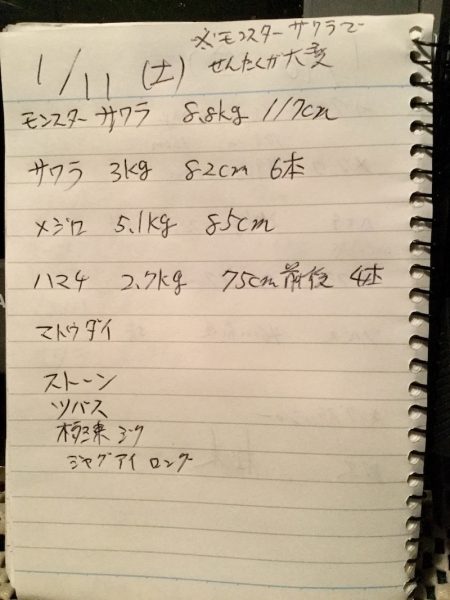 ※モンスターサワラで
せんたくが大変
1/11 (土)
モンスターサワラ 8.8kg 117cm
サワラ 3kg 82cm 6本
メジロ 5.1kg 85cm
ハマチ 2.7kg 75cm前後 4本
マトウダイ
ストーン
ツバス
ジグ
ジャグアイ ロング